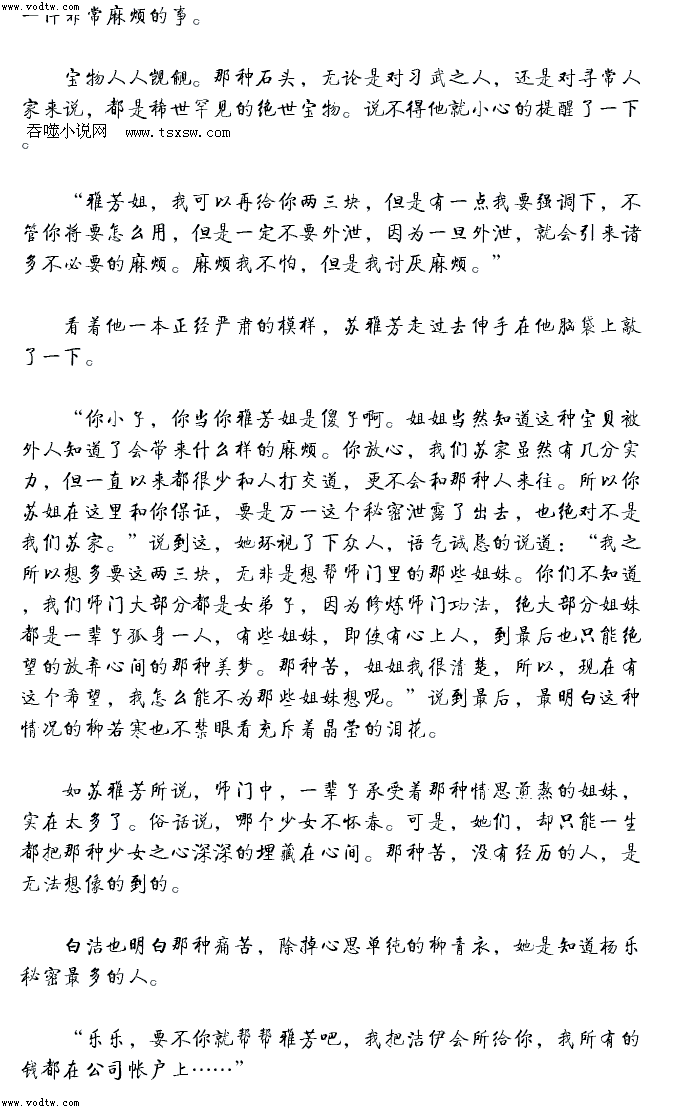 www.vodtw.com
一件非常麻烦的事。
宝物人人觊觎。那种石头，无论是对习武之人，还是对寻常人
家来说，都是稀世罕见的绝世宝物。说不得他就小心的提醒了一下
。
吞噬小说网 www.tsxsw.com
“雅芳姐，我可以再给你两三块，但是有一点我要强调下，不
管你将要怎么用，但是一定不要外泄，因为一旦外泄，就会引来诸
多不必要的麻烦。麻烦我不怕，但是我讨厌麻烦。”
看着他一本正经严肃的模样，苏雅芳走过去伸手在他脑袋上敲
了一下。
“你小子，你当你雅芳姐是傻子啊。姐姐当然知道这种宝贝被
外人知道了会带来什么样的麻烦。你放心，我们苏家虽然有几分实
力，但一直以来都很少和人打交道，更不会和那种人来往。所以你
苏姐在这里和你保证，要是万一这个秘密泄露了出去，也绝对不是
我们苏家。”说到这，她环视了下众人，语气诚恳的说道：“我之
所以想多要这两三块，无非是想帮师门里的那些姐妹。你们不知道
，我们师门大部分都是女弟子，因为修炼师门功法，绝大部分姐妹
都是一辈子孤身一人，有些姐妹，即使有心上人，到最后也只能绝
望的放弃心间的那种美梦。那种苦，姐姐我很清楚，所以，现在有
这个希望，我怎么能不为那些姐妹想呢。”说到最后，最明白这种
情况的柳若寒也不禁眼看充斥着晶莹的泪花。
如苏雅芳所说，师门中，一辈子承受着那种情思煎熬的姐妹，
实在太多了。俗话说，哪个少女不怀春。可是，她们，却只能一生
都把那种少女之心深深的埋藏在心间。那种苦，没有经历的人，是
无法想像的到的。
白洁也明白那种痛苦，除掉心思单纯的柳青衣，她是知道杨乐
秘密最多的人。
“乐乐，要不你就帮帮雅芳吧，我把洁伊会所给你，我所有的
钱都在公司帐户上……”
www.vodtw.com